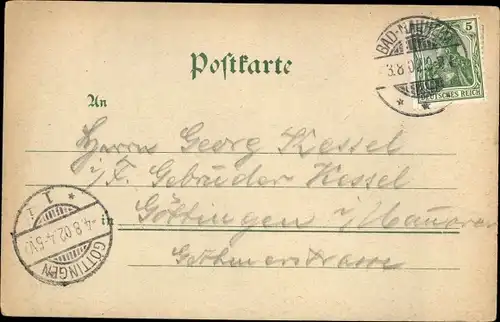 Postkarte
BAD-NAUHEIM
3.8.02
5
DEUTSCHES REICH
An
Herrn Georg Kessel
i/F. Gebrüder Kessel
in Göttingen i/Hannover
GÖTTINGEN
-4.8.02.4-5N.
* 1 *